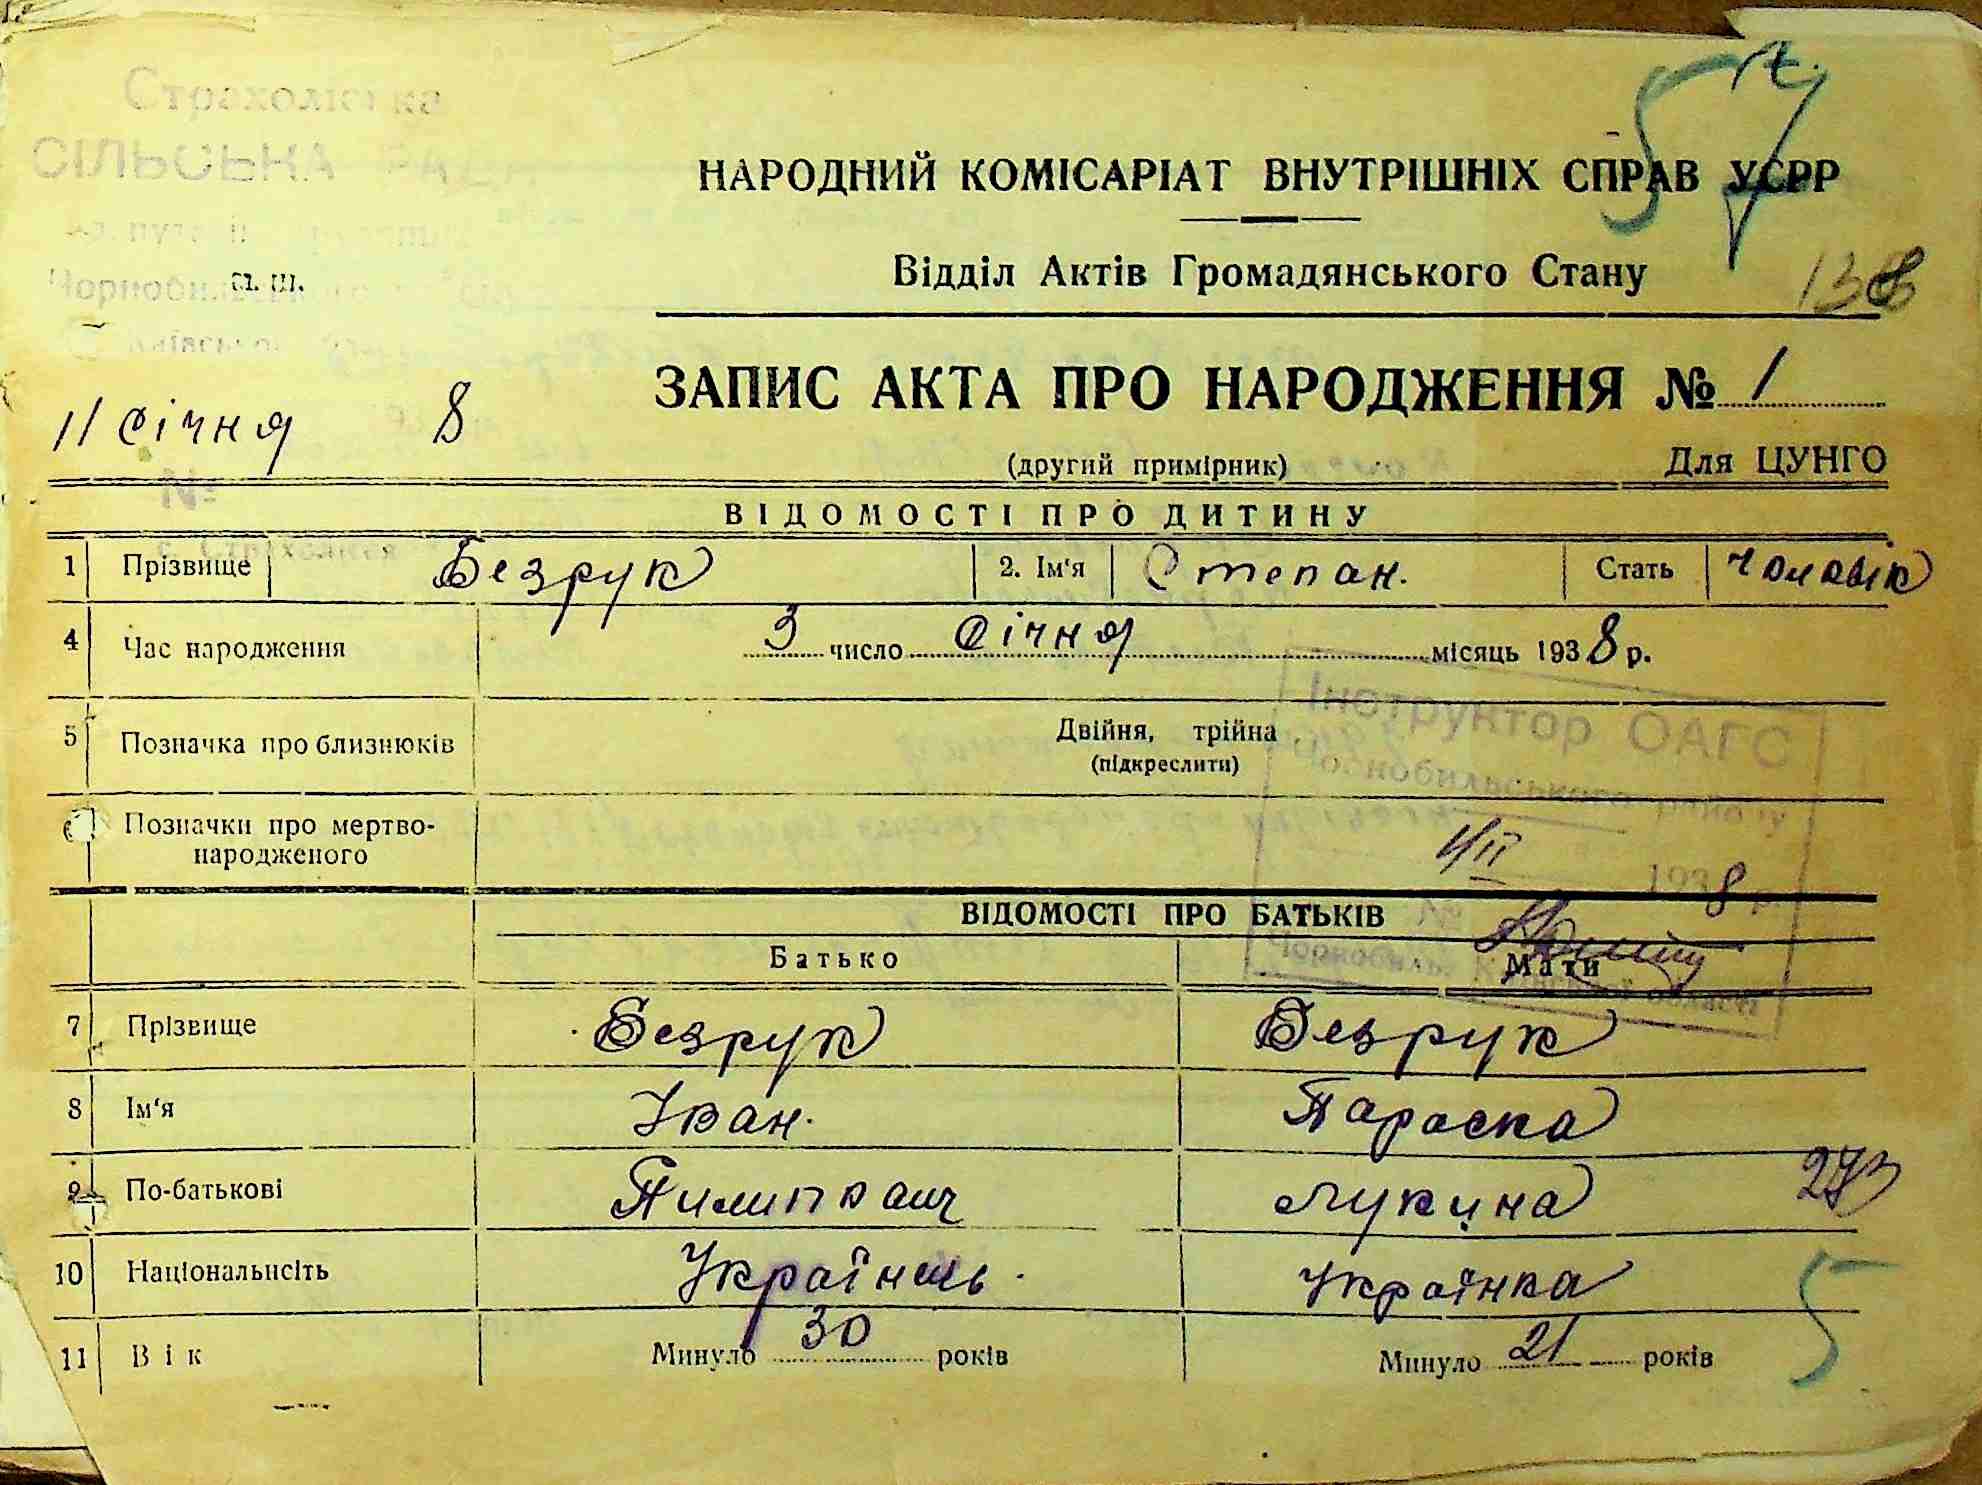 Страхоліська
СІЛЬСЬКА РАДА
НАРОДНИЙ КОМІСАРІАТ ВНУТРІШНІХ СПРАВ УСРР
57
Відділ Актів Громадянського Стану
138
М. Ш.
ЗАПИС АКТА ПРО НАРОДЖЕННЯ № 1
11 січня 8
(другий примірник) Для ЦУНГО
№
ВІДОМОСТІ ПРО ДИТИНУ
1 Прізвище Безрук 2. Ім'я Степан. Стать чоловік
4 Час народження 3 число січня місяць 1938 р.
5 Позначка про близнюків Двійня, трійна
(підкреслити)
Інструктор ОАГС
Чорнобильського району
Позначки про мертво-
народженого
1/II 1938 р.
№
ВІДОМОСТІ ПРО БАТЬКІВ
Батько Мати
Чорнобиль Київської області
7 Прізвище Безрук Безрук
8 Ім'я Іван. Параска
9 По-батькові Пилипович Лукина 273
10 Національність Українець. Українка
5
11 Вік Минуло 30 років Минуло 21 років